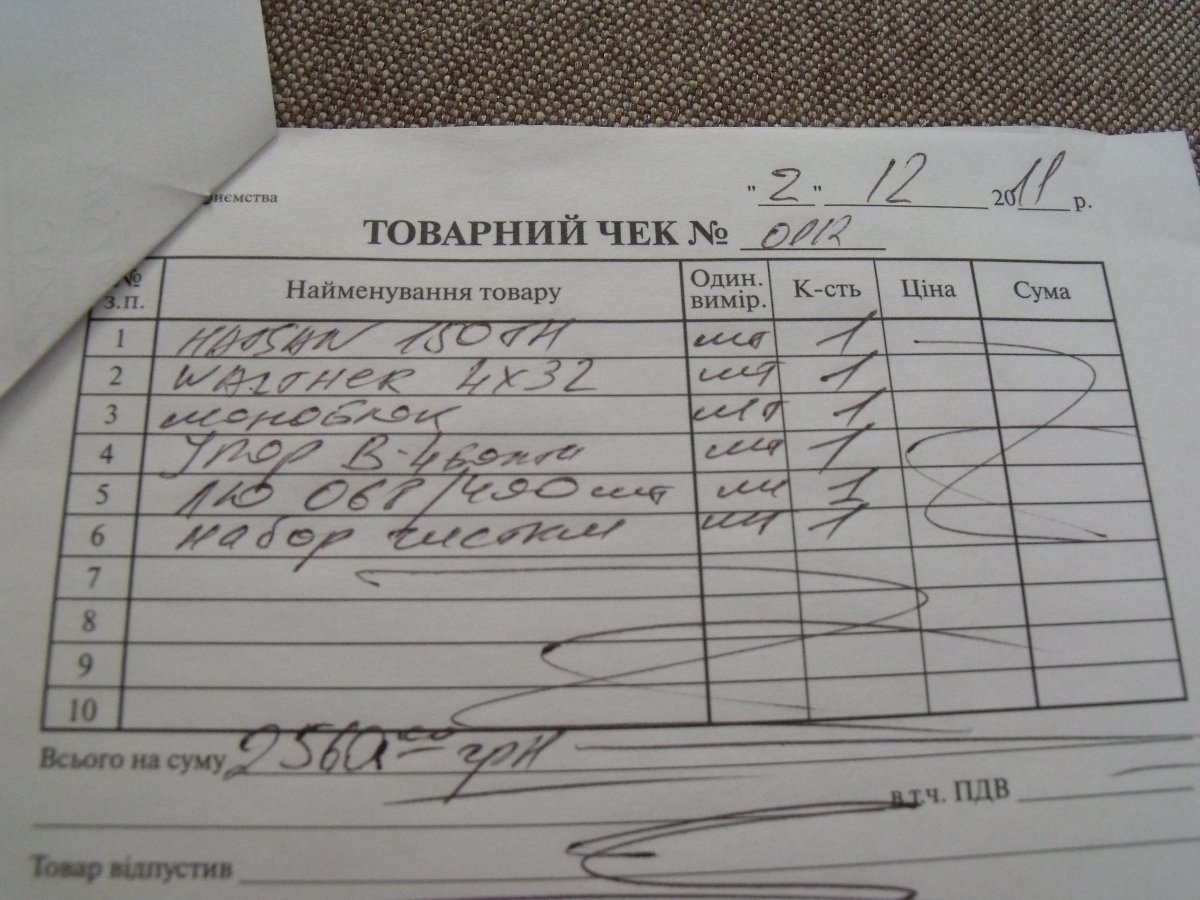 риємства
"2" 12 2011 р.
ТОВАРНИЙ ЧЕК №
№ з.п. Найменування товару Один. вимір. К-сть Ціна Сума
1 HATSAN 150TH шт 1
2 WALTHER 4x32 шт 1
3 моноблок шт 1
4 Упор В- шт 1
5 шт шт 1
6 набор чистки шт 1
7
8
9
10
Всього на суму 2560 00 грн
в.т.ч. ПДВ
Товар відпустив